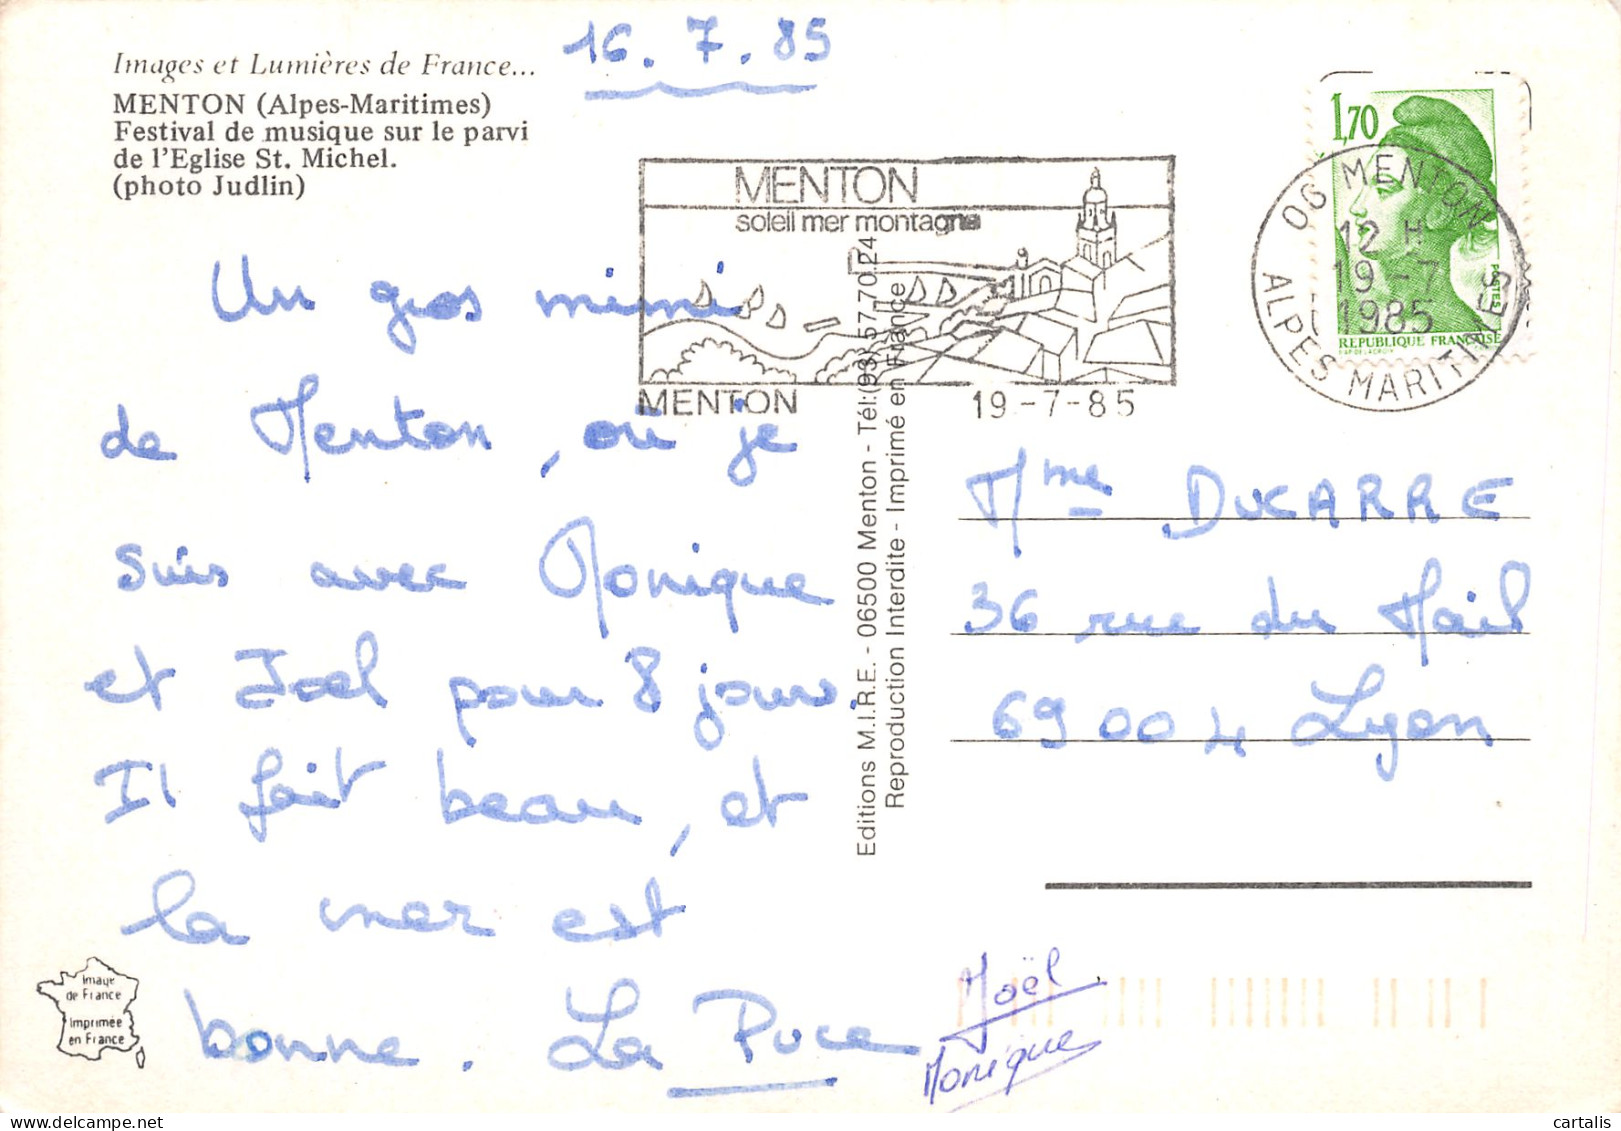 16.7.85
Images et Lumières de France...
MENTON (Alpes-Maritimes)
Festival de musique sur le parvi
de l'Eglise St. Michel.
(photo Judlin)
MENTON
soleil mer montagne
MENTON 19-7-85
1,70
06 MENTON
12 H
19-7
1985
ALPES MARITIMES
POSTES
REPUBLIQUE FRANÇAISE
Un gros mimi
de Menton, où je
suis avec Monique
et Joel pour 8 jours.
Il fait beau, et
la mer est
bonne. La Puce
Joël
Monique
Editions M.I.R.E. - 06500 Menton - Tél:(93) 57.70.24
Reproduction Interdite - Imprimé en France
Mme DUCARRE
36 rue du Mail
69004 Lyon
Image
de France
Imprimée
en France
cartalis